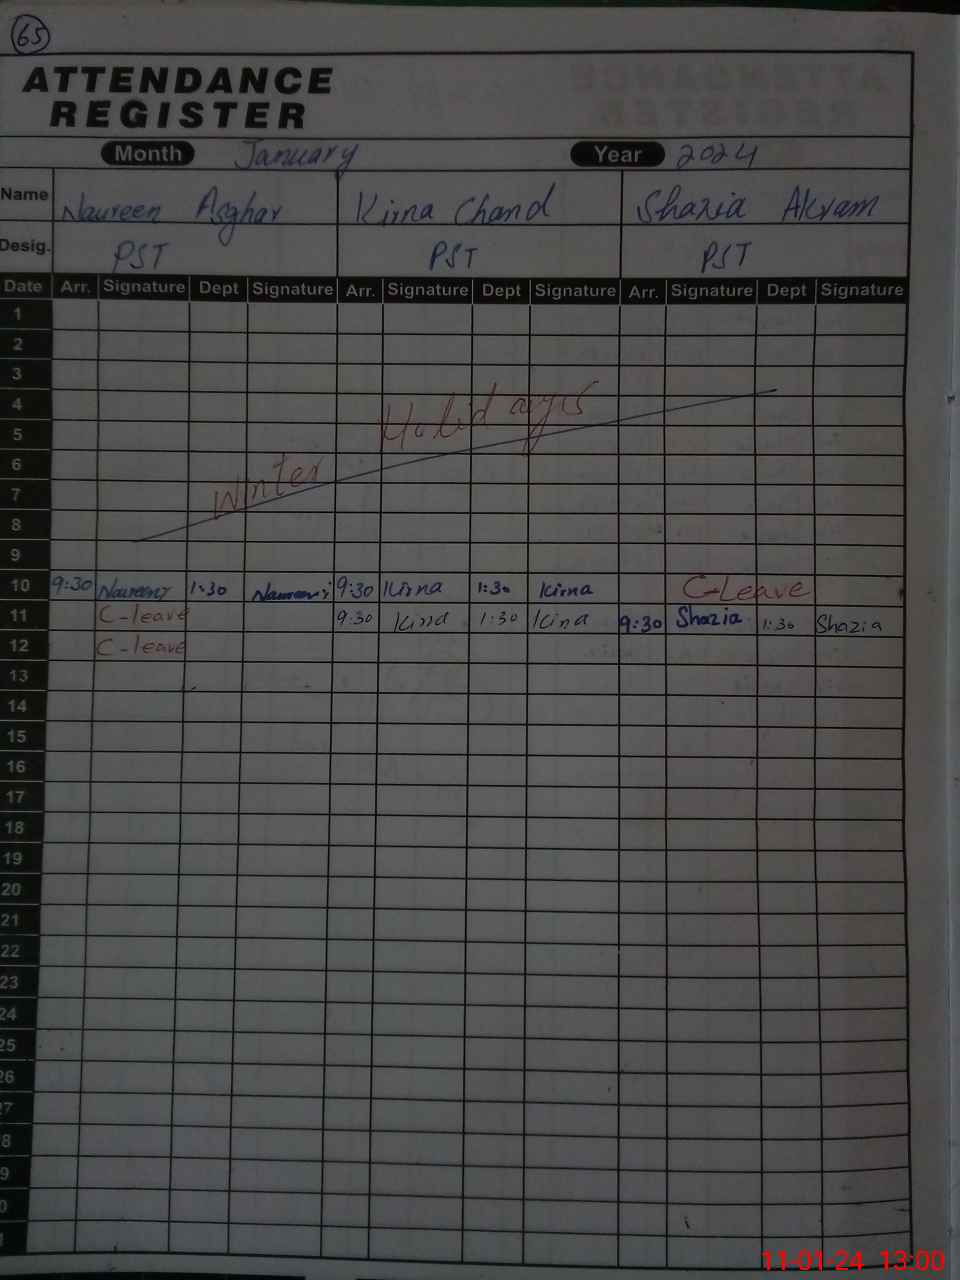 65
ATTENDANCE
REGISTER
Month January Year 2024
Name Naureen Asghar Kirna Chand Shazia Akram
Desig. PST PST PST
Date Arr. Signature Dept Signature Arr. Signature Dept Signature Arr. Signature Dept Signature
1
2
3
4 Holidays
5
6
7 Winter
8
9
10 9:30 Naureen 1:30 Naureen 9:30 Kirna 1:30 Kirna C-Leave
11 C-leave 9:30 Kirna 1:30 Kirna 9:30 Shazia 1:30 Shazia
12 C-leave
13
14
15
16
17
18
19
20
21
22
23
24
25
26
7
8
9
0
11-01-24 13:00